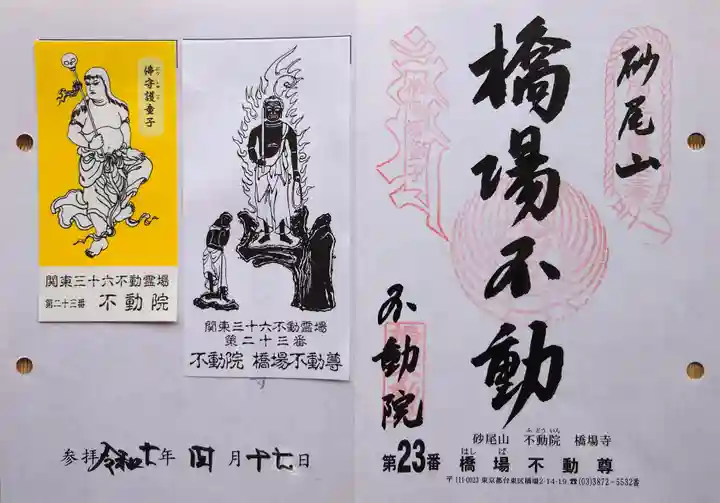 佛守護童子
ぶつしゅごどうじ
関東三十六不動霊場
第二十三番 不動院
関東三十六不動霊場
第二十三番
不動院 橋場不動尊
参拝令和七年 四月十七日
砂尾山
橋場不動
不動院
砂尾山 不動院 橋場寺
ふどういん
第23番 橋場不動尊
はしば
〒111-0023 東京都台東区橋場2-14-19 ☎(03)3872-5532番